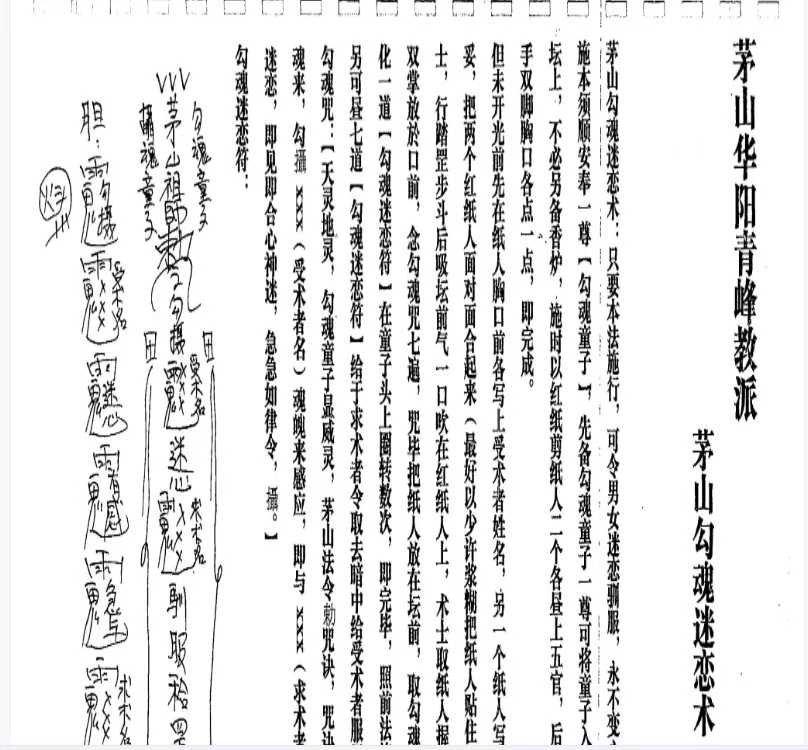 茅山华阳青峰教派
茅山勾魂迷恋术
茅山勾魂迷恋术：只要本法施行，可令男女迷恋驯服，永不变
施本须顺安奉一尊【勾魂童子】，先备勾魂童子一尊可将童子入
坛上，不必另备香炉，施时以红纸剪纸人二个各昼上五官，后
手双脚胸口各点一点，即完成。
但未开光前先在纸人胸口前各写上受术者姓名，另一个纸人写
妥，把两个红纸人面对面合起来（最好以少许浆糊把纸人贴住
士，行踏罡步斗后吸坛前气一口吹在红纸人上，术士取纸人握
双掌放於口前，念勾魂咒七遍，咒毕把纸人放在坛前，取勾魂
化一道【勾魂迷恋符】在童子头上圈转数次，即完毕，照前法
另可昼七道【勾魂迷恋符】给于求术者令取去暗中给受术者服
勾魂咒：【天灵地灵，勾魂童子显威灵，茅山法令勅咒诀，咒诀
魂来，勾攝 xxx（受术者名）魂魄来感应，即与 xxx（求术者
迷恋，即见即合心神迷，急急如律令，攝。】
勾魂迷恋符：
勾魂童子
茅山祖師勅令勾攝
受术名
xxx
迷恋
求术名
xxx
馴服
攝魂童子
胆：
勾攝
受术名
xxx
迷恋
有感
急与
求术名
xxx